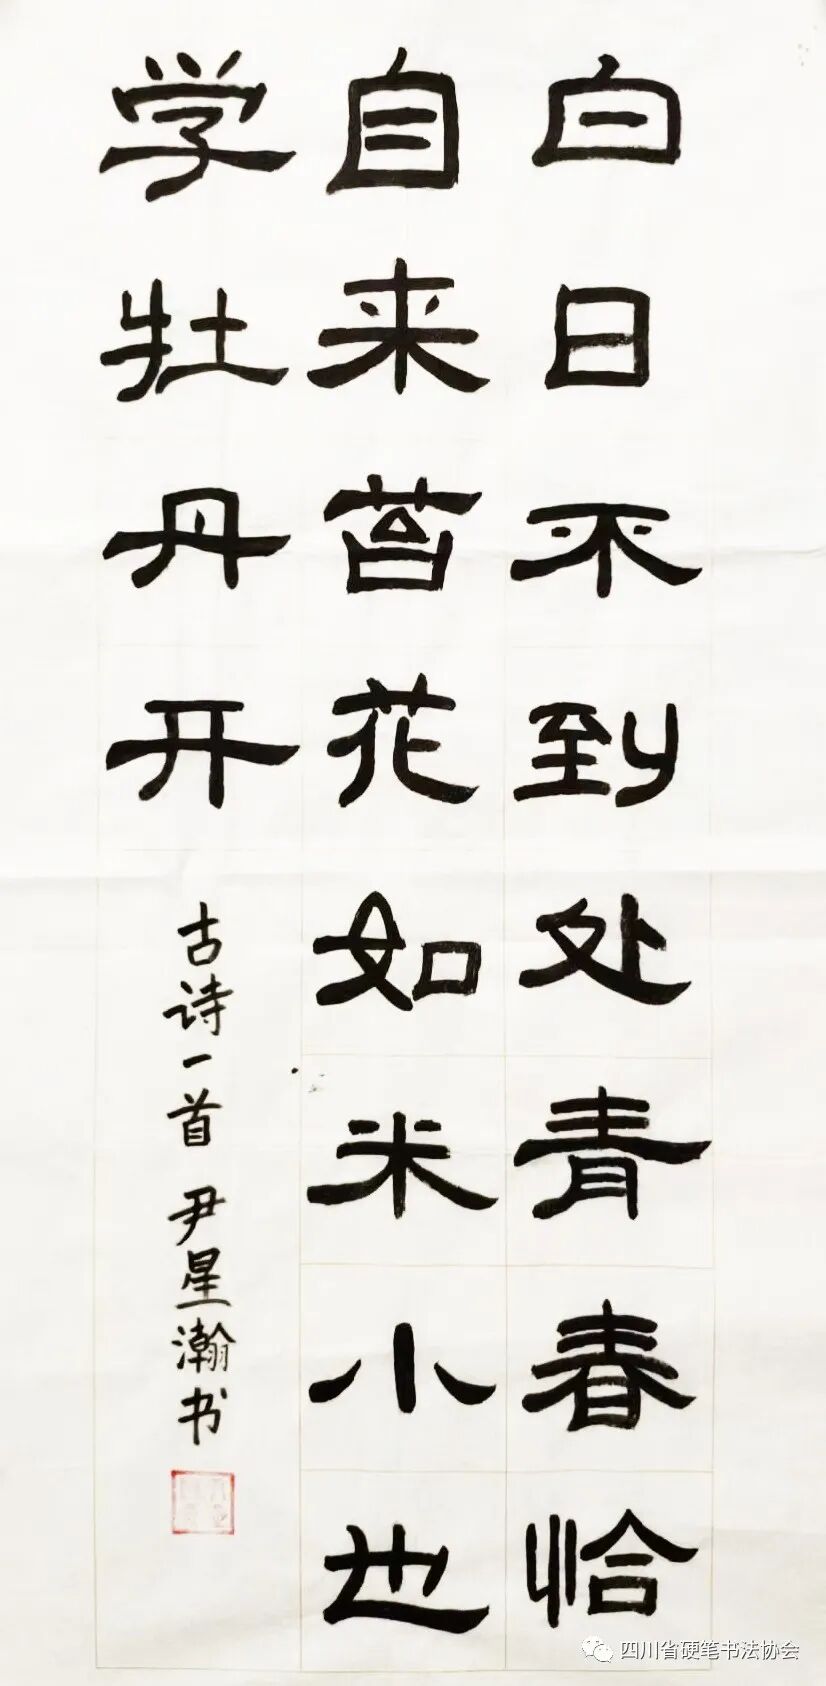 白日不到处青春恰
自来苔花如米小也
学牡丹开
古诗一首 尹星瀚书
四川省硬笔书法协会